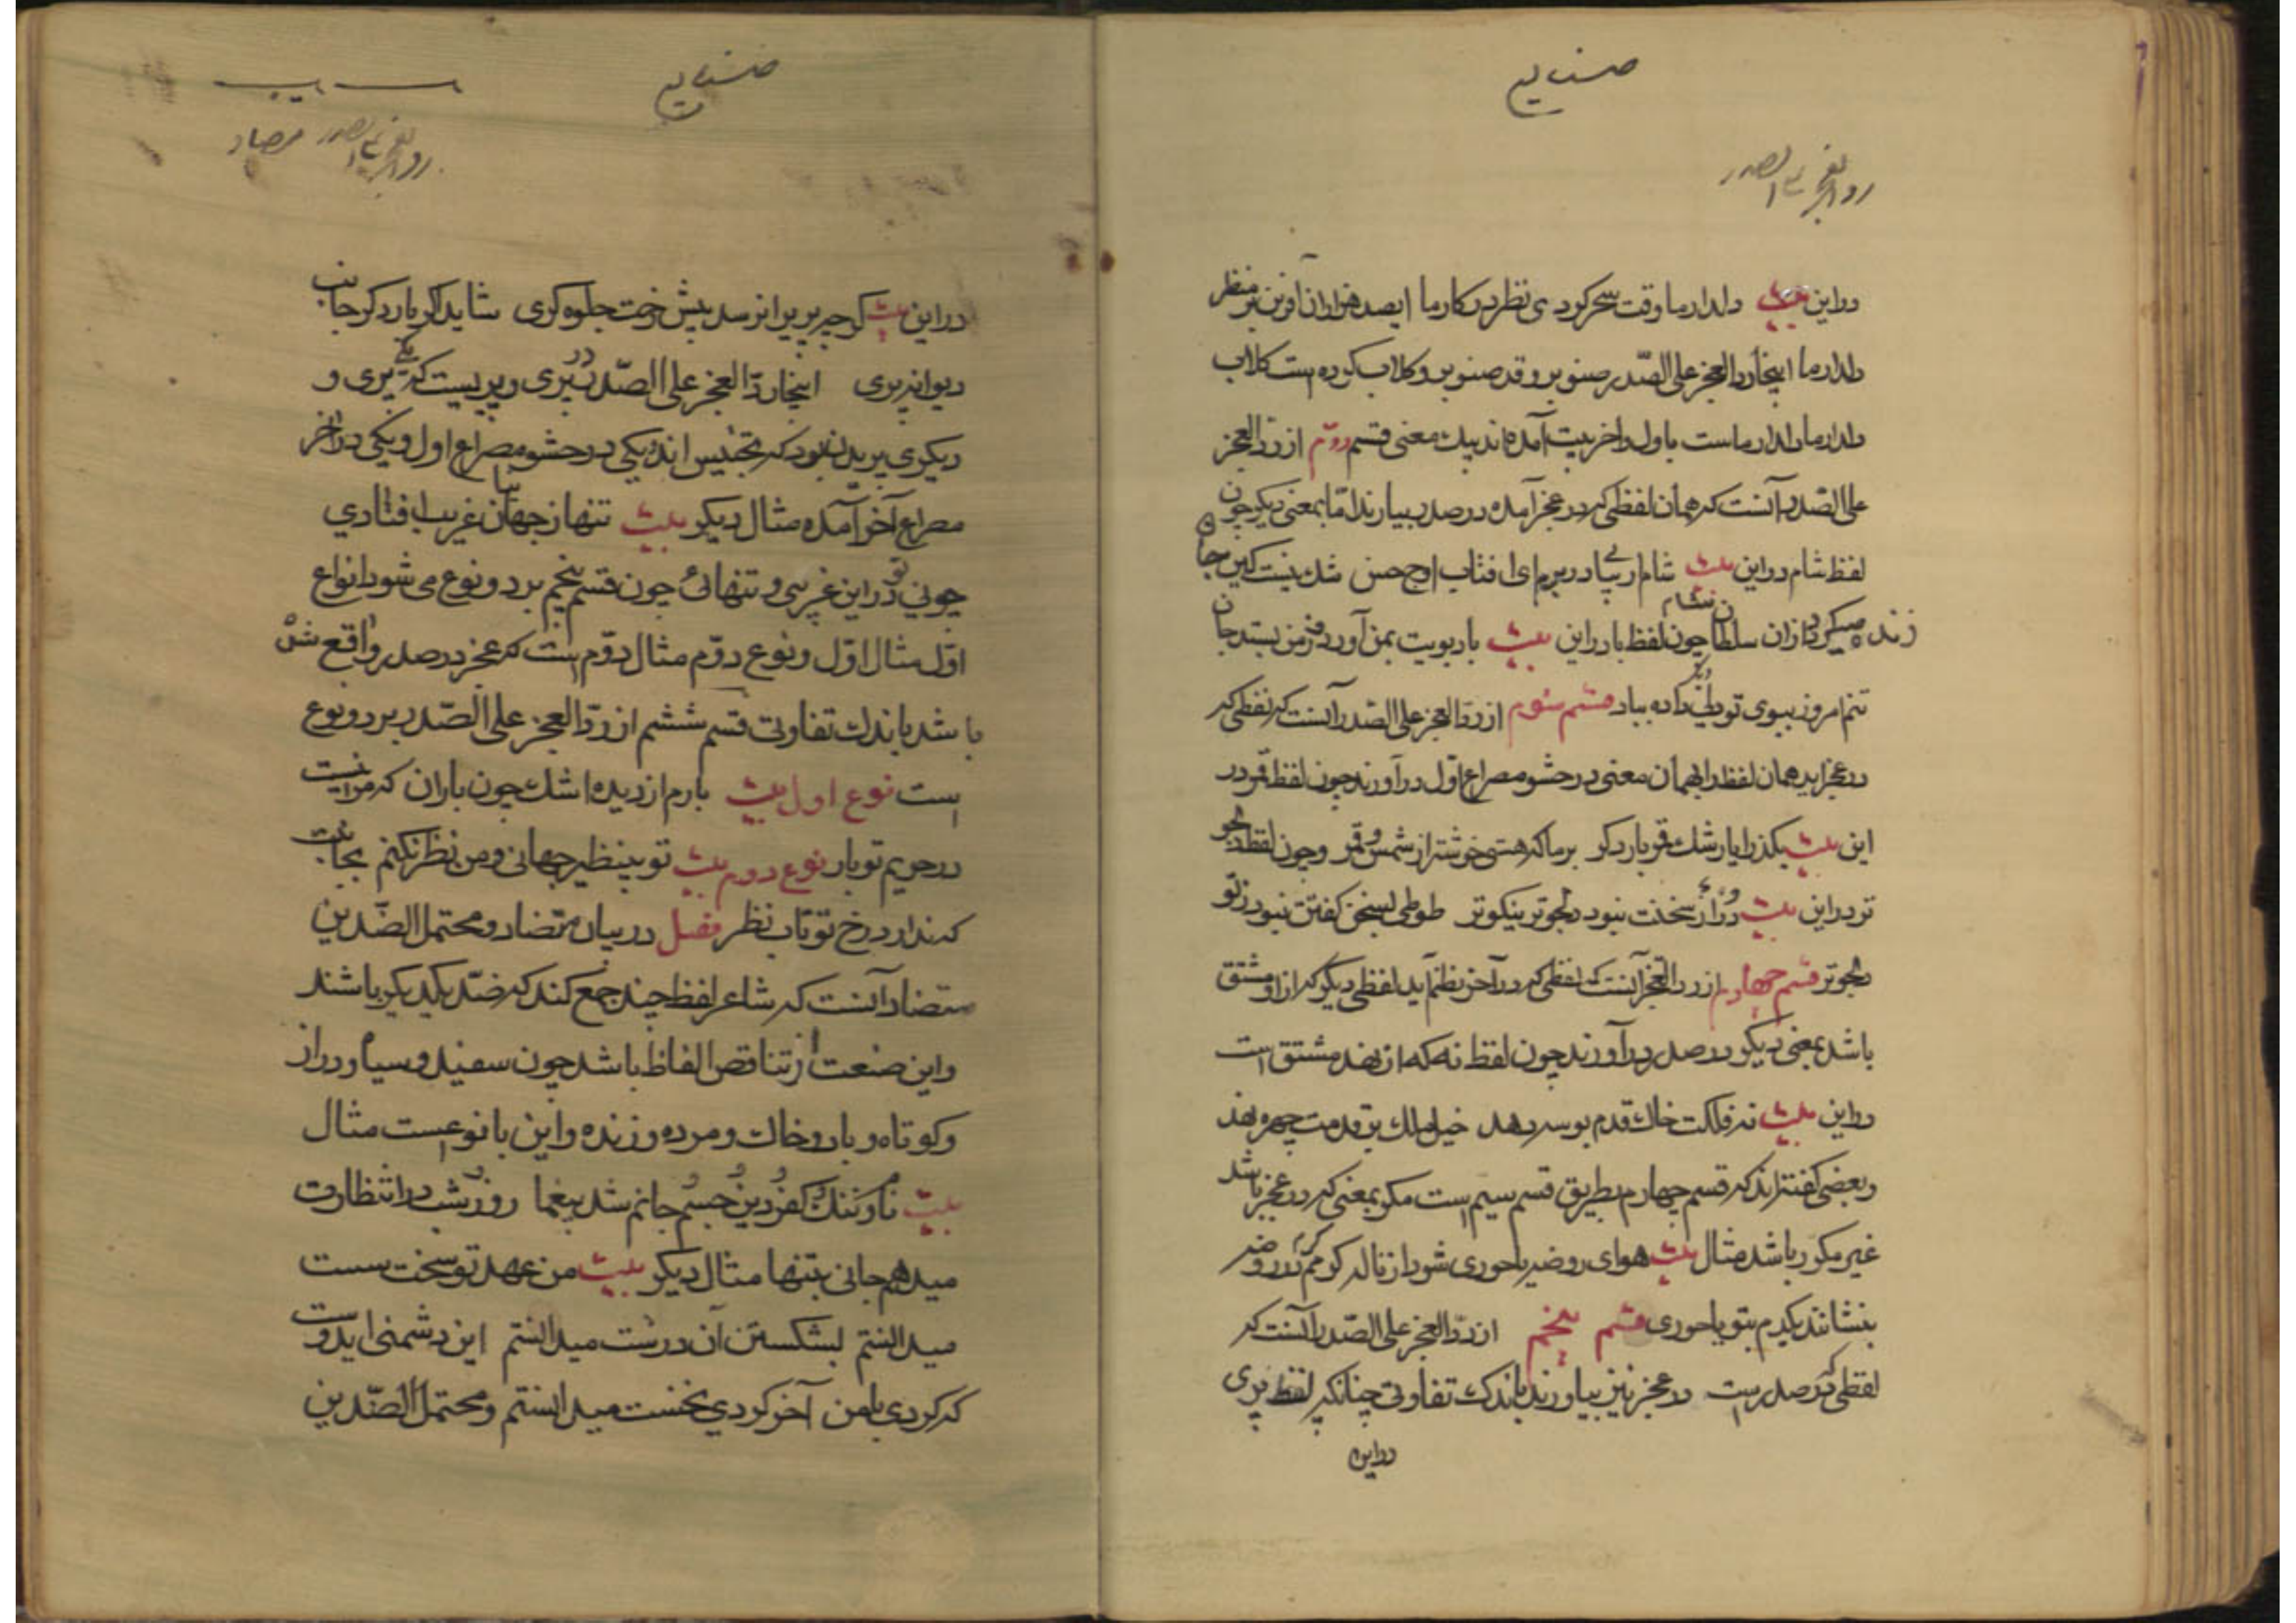 صنایع
رد العجز علی الصدر
در این بیت دلدار ما وقت سحر کردی نظر در کار ما ای صد هزاران آفرین بر منظر
دلدار ما اینجا رد العجز علی الصّدر صنوبر و قد صنوبر و کلاب کرده است کلاب
دلدار ما دلدار ماست باول و آخر بیت آمده اند بیك معنی قسم دوّم از ردّ العجز
علی الصّدر آنست که همان لفظی که در عجز آمده در صدر بیارند امّا بمعنی دیگر چون
لفظ شام در این بیت شام ار بیا در برم ای افتاب اوج حسن شك نیست کین جا
زند میکرد از ان سلطان نشام چون لفظ باد در این بیت باد بویت بمن آورد ز من بستد جان
تنم امروز ببوی تو دلی داده بباد قسم سوم از ردّ العجز علی الصّدر آنست که لفظی که
در عجز اید همان لفظ را بهمان معنی در حشو مصراع اوّل در آورند چون لفظ قمر در
این بیت بکذر ایا رشك قمر بار دکر بر ما که هستی خوشتر از شمس و قمر و چون لفظ دلجو
تر در این بیت سخنت نبود دلجوتر نیکوتر طوطی بسخن کفتن نبود ز تو
دلجوتر قسم چهارم از رد العجز آنست که لفظی که در آخر نظم آید لفظی دیگر که از او مشتق
باشد بمعنی دیکر در صدر در آورند چون لفظ نه که از نهد مشتق است
در این بیت نه فلکت خاك قدم بوسه دهد خیل ملك بر قدمت چهره نهد
و بعضی کفته اند که قسم چهارم بطریق قسم سیم است مکر بمعنی که در عجز باشد
غیر مکرر باشد مثال بیت هوای روضه با حوری شود از ناله کر دم در روضه
بنشانند یکدم بتو با حوری قسم پنجم از ردّ العجز علی الصّدر آنست که
لفظی که در صدر است در عجز نیز بیاورند باندك تفاوتی چنانکه لفظ پری
در این
صنایع
رد العجز علی الصدر متضاد
در این بیت کرچه پریرا نرسد پیش رخت جلوه کری شاید اکر بار دکر جانب
دیوانه پری اینجا ردّ العجز علی الصّدر در پری و پریست که یکی پری و
دیکری پریدن بود که تجنیس اند یکی در حشو مصراع اول و یکی در آخر
مصراع آخر آمده مثال دیکر بیت تنها ز جهان بیا غریب افتادی
چونی تو در این غریبی و تنهائی چون قسم پنجم بر دو نوع می شود انواع
اوّل مثال اوّل و نوع دوّم مثال دوّم است که عجز در صدر واقع شده
باشد باندك تفاوتی قسم ششم از ردّ العجز علی الصّدر بر دو نوع
است نوع اول بیت بارم از دیده اشك چون باران که مرا نیست
در حریم تو بار نوع دوم بیت تو بینظیر جهانی و من نظر نکنم بجانبت
که ندارد رخ تو تاب نظر فصل در بیان متضاد و محتمل الضّدین
متضاد آنست که شاعر لفظ چند جمع کند که ضدّ یکدیکر باشند
و این صنعت از تناقض الفاظ باشد چون سفید و سیاه و دراز
و کوتاه و باد و خاك و مرده و زنده و این بانوعست مثال
بیت نام و ننك و کفر و دین و جسم و جانم شد بیغما روز و شب در انتظارت
میدهم جانی بتنها مثال دیکر بیت من عهد تو سخت سست
میدانستم بشکستن آن درست میدانستم این دشمنی ایدوست
که کردی با من آخر کردی نخست میدانستم و محتمل الضّدین